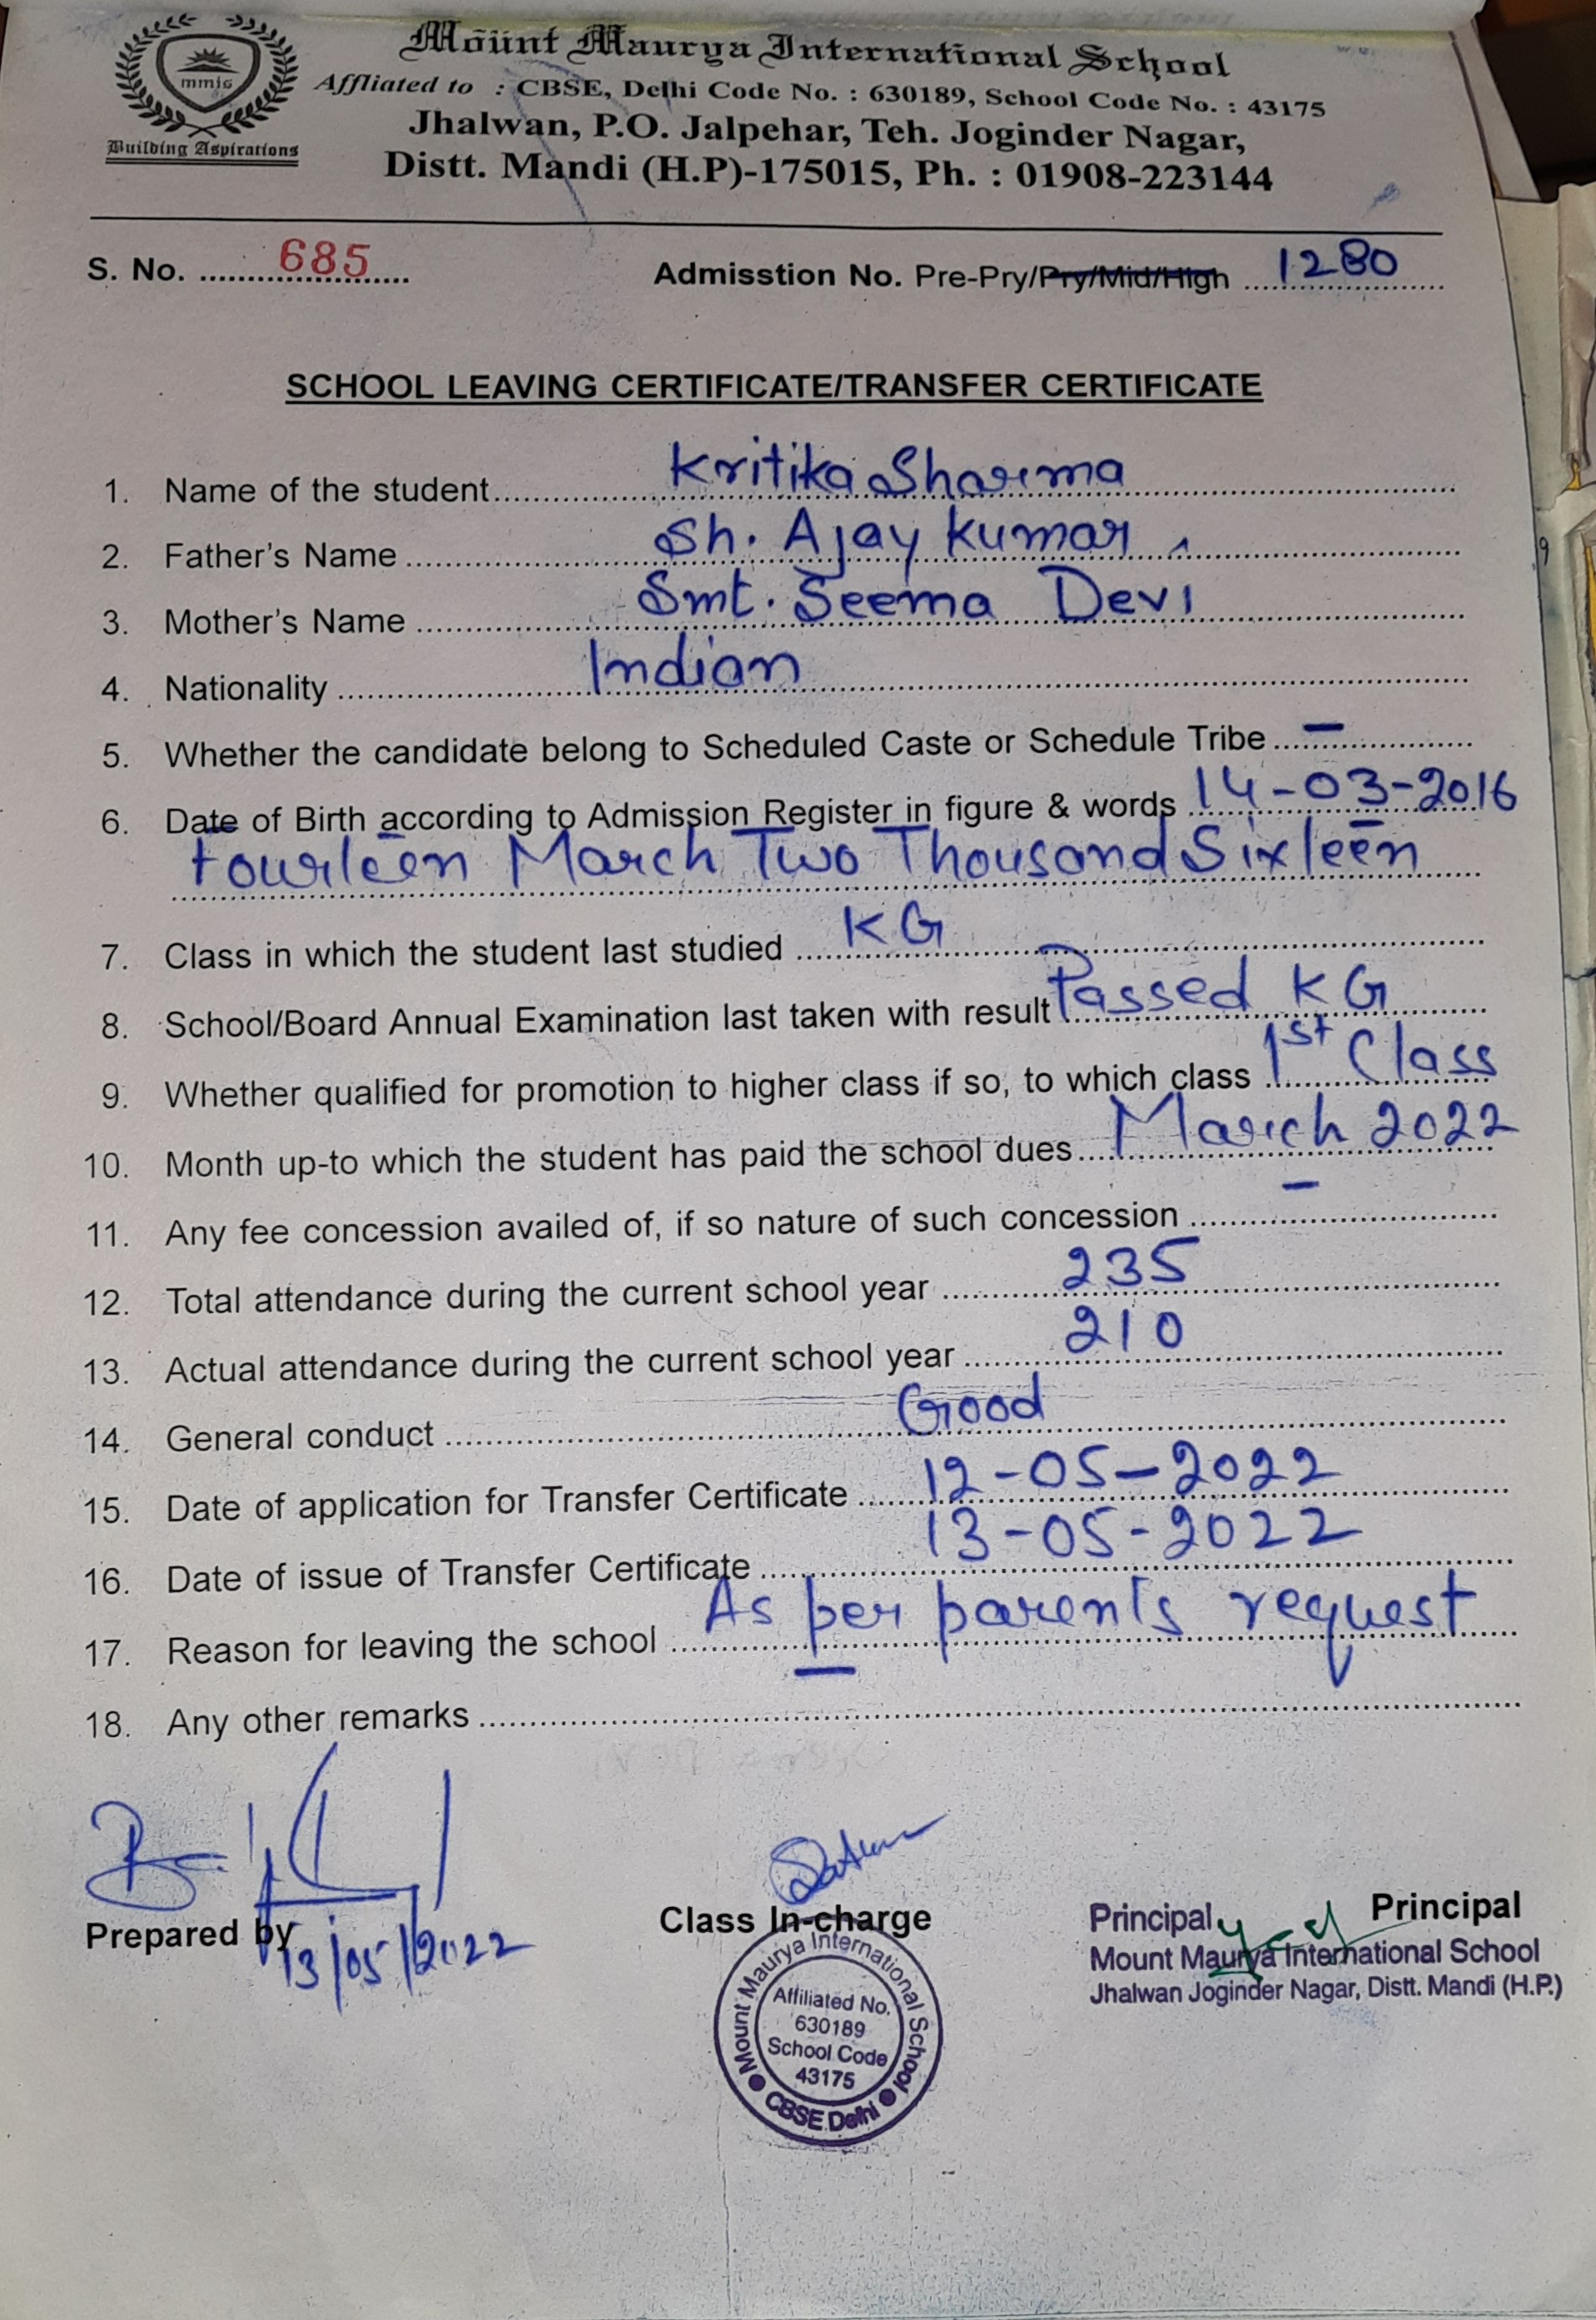 mmis
Building Aspirations
Mount Maurya International School
Affliated to : CBSE, Delhi Code No. : 630189, School Code No. : 43175
Jhalwan, P.O. Jalpehar, Teh. Joginder Nagar,
Distt. Mandi (H.P)-175015, Ph. : 01908-223144
S. No. 685 Admisstion No. Pre-Pry/Pry/Mid/High 1280
SCHOOL LEAVING CERTIFICATE/TRANSFER CERTIFICATE
1. Name of the student Kritika Sharma
2. Father's Name Sh. Ajay Kumar
3. Mother's Name Smt. Seema Devi
4. Nationality Indian
5. Whether the candidate belong to Scheduled Caste or Schedule Tribe –
6. Date of Birth according to Admission Register in figure & words 14-03-2016
Fourteen March Two Thousand Sixteen
7. Class in which the student last studied KG
8. School/Board Annual Examination last taken with result Passed KG
9. Whether qualified for promotion to higher class if so, to which class 1st Class
10. Month up-to which the student has paid the school dues March 2022
11. Any fee concession availed of, if so nature of such concession –
12. Total attendance during the current school year 235
13. Actual attendance during the current school year 210
14. General conduct Good
15. Date of application for Transfer Certificate 12-05-2022
16. Date of issue of Transfer Certificate 13-05-2022
17. Reason for leaving the school As per parents request
18. Any other remarks –
Prepared by Class In-charge Principal
13/05/2022
Principal
Mount Maurya International School
Jhalwan Joginder Nagar, Distt. Mandi (H.P.)
Mount Maurya International School
Affiliated No.
630189
School Code
43175
CBSE Delhi